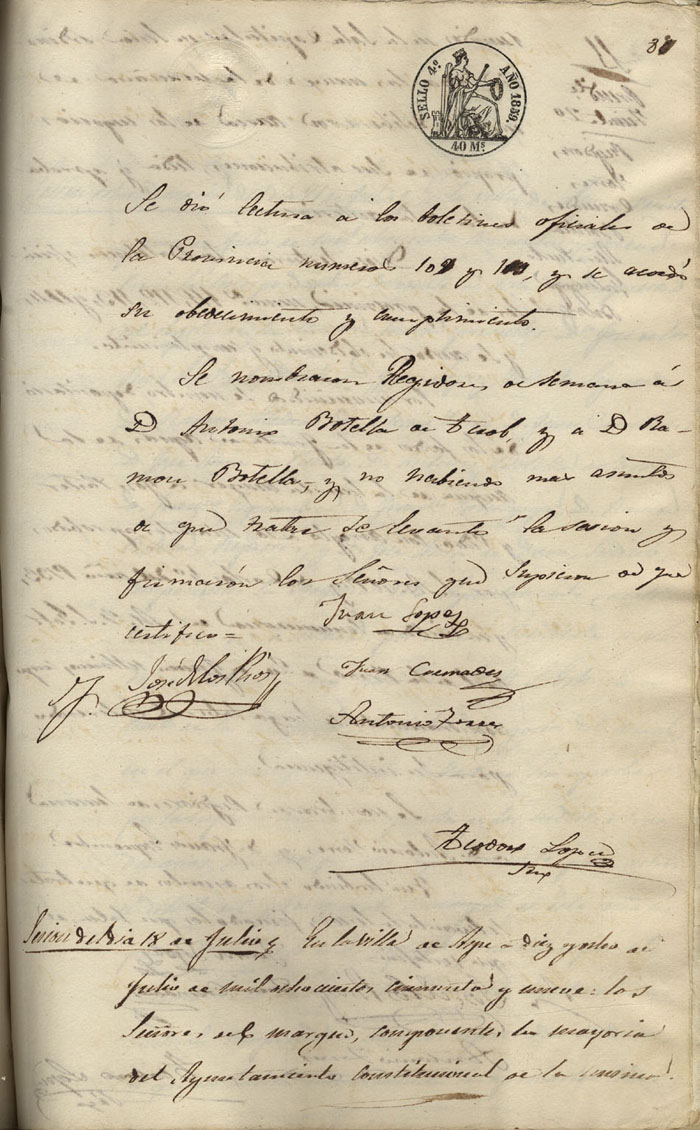 87
SELLO 4º AÑO 1859.
40 Ms
Se dió lectura a los boletines oficiales de
la Provincia numeros 109 y 110, y se acordó
su obedecimiento y cumplimiento.
Se nombraron Regidores de semana á
D Antonio Botella de Jacob, y á D Ra-
mon Botella, y no habiendo mas asuntos
de que tratar se levantó la sesion y
firmarón los Señores que supieron de que
certifico=
Juan Lopez
José de los Rios
Juan Cremades
Antonio Ferrer
Teodoro Lopez
Srio
Sesion del dia 18 de Julio
En la Villa de Aspe a diez y ocho de
Julio de mil ochocientos cincuenta y nueve: los
Señores del margen, componentes la mayoria
del Ayuntamiento constitucional de la misma